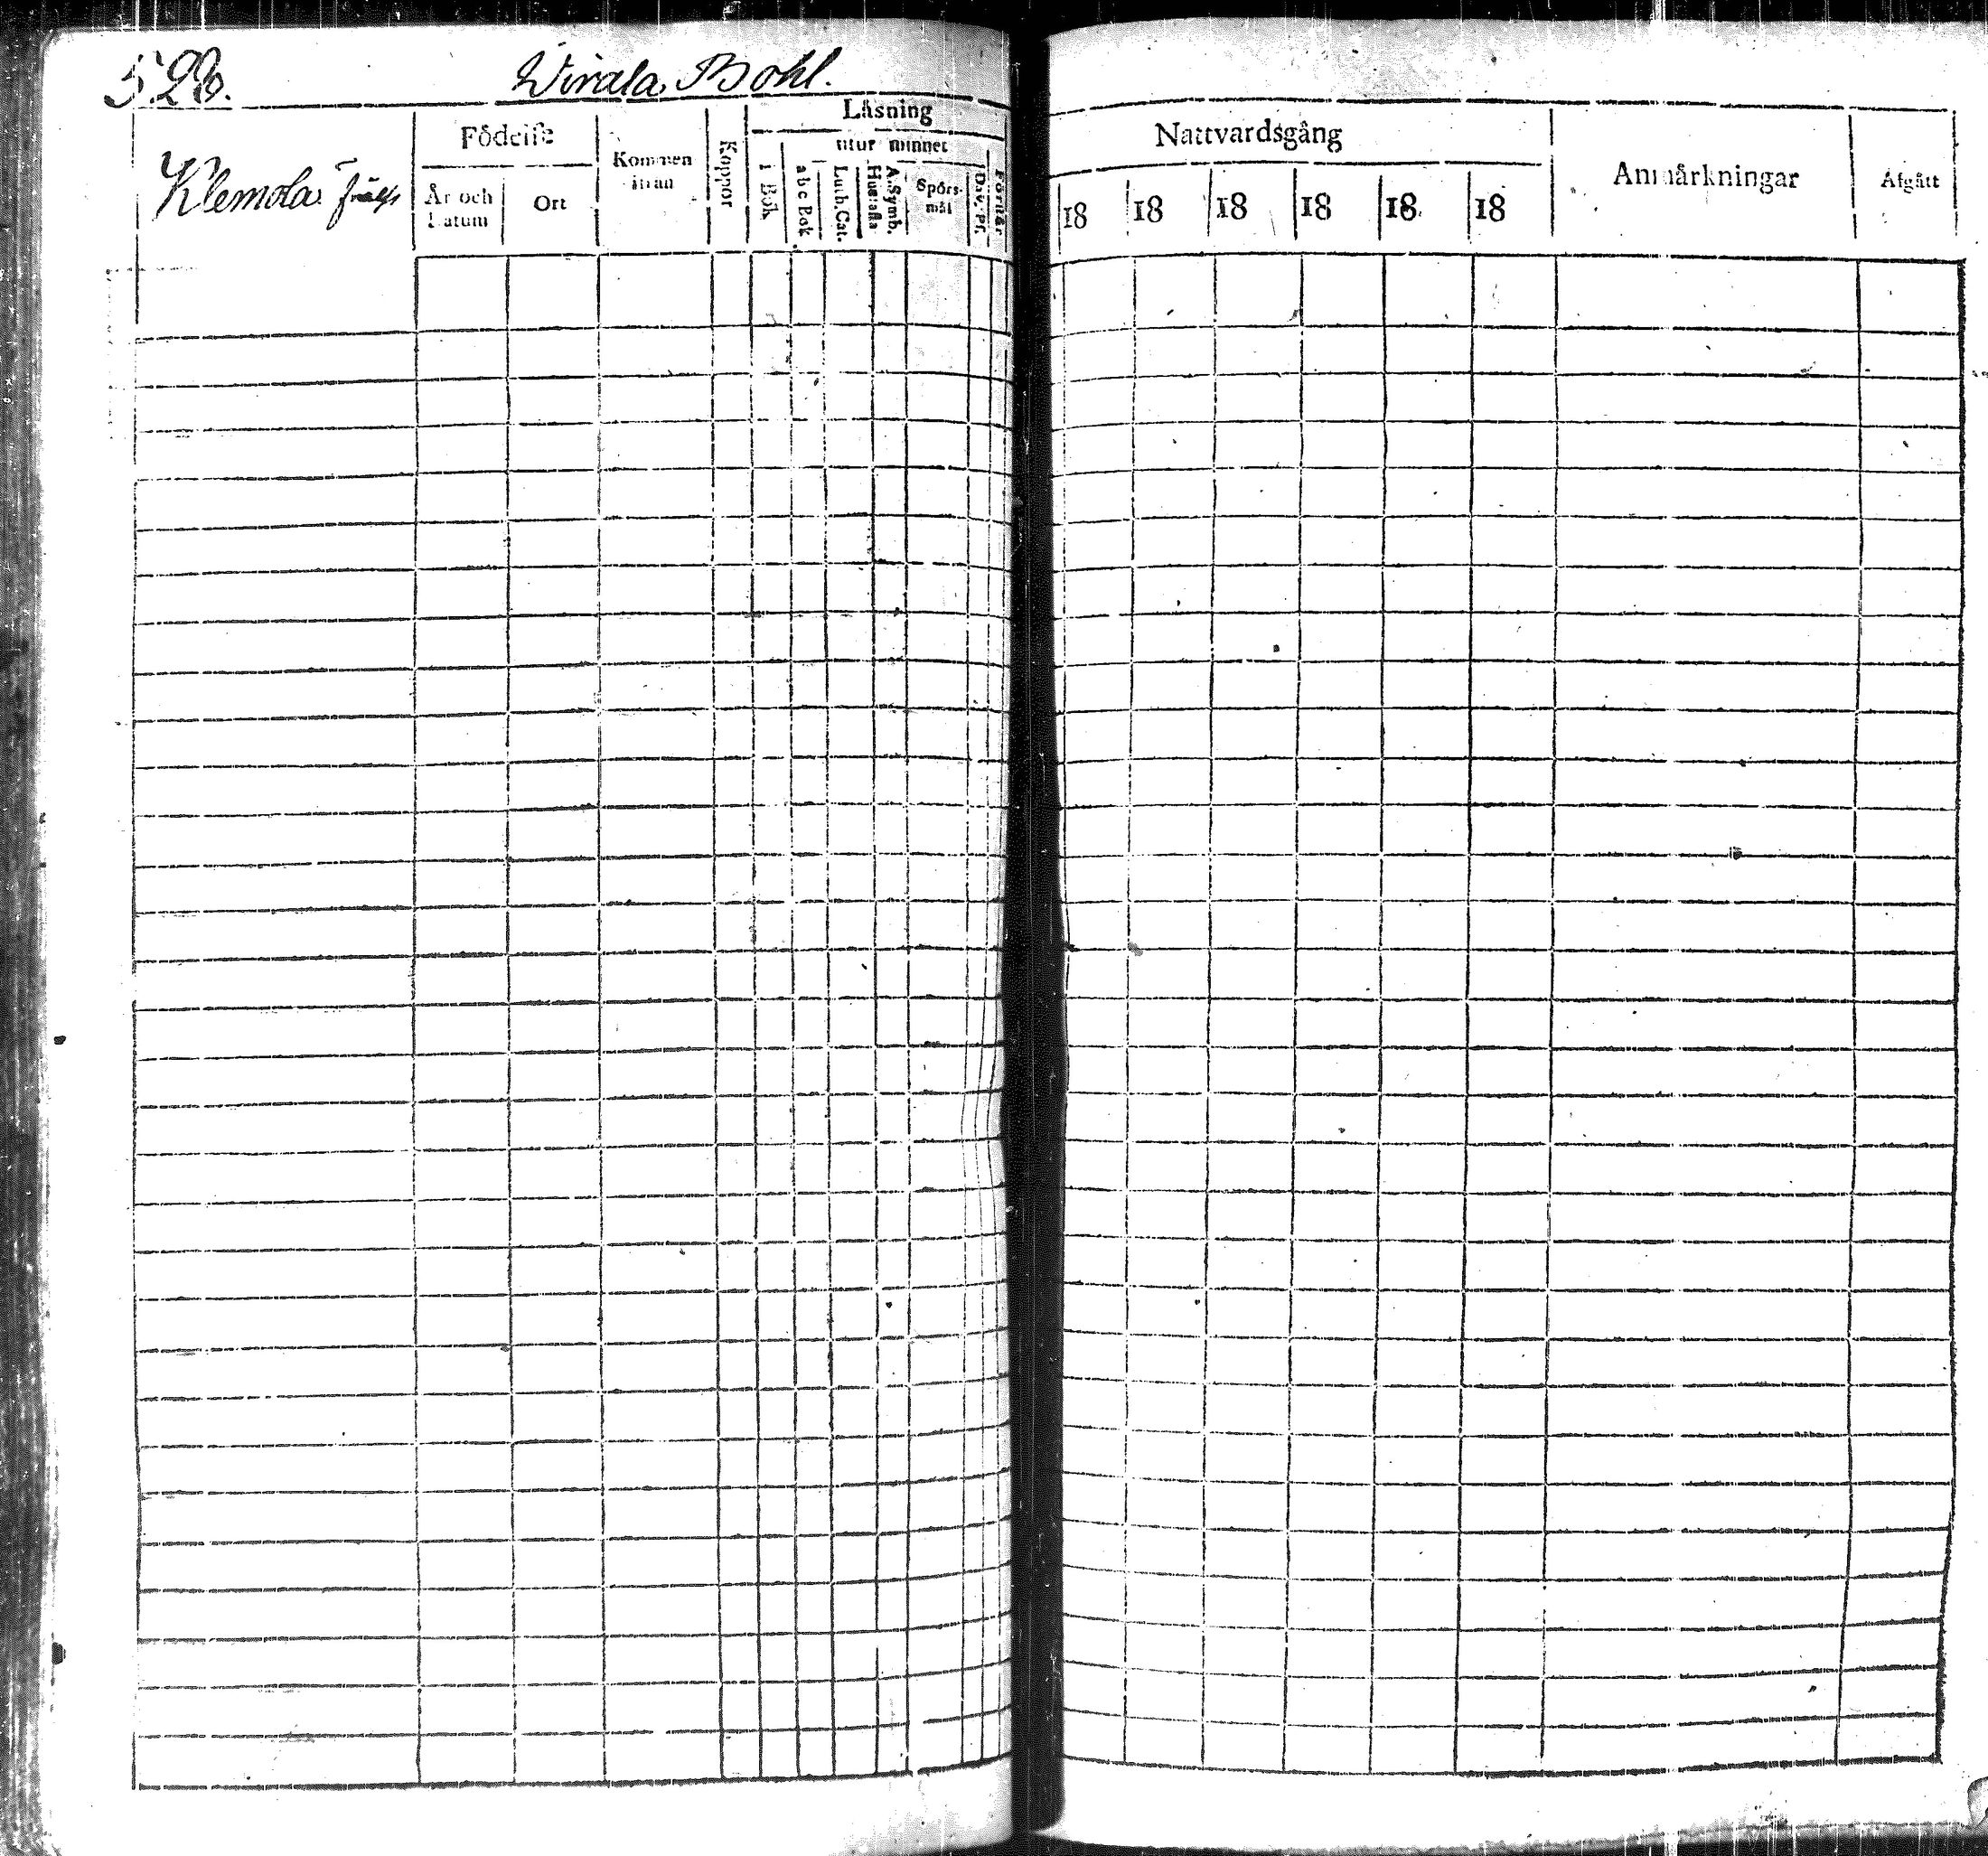 528.
Wirala Bohl.
Klemola
Födelse
År och Datum
Ort
Kommen ifrån
Koppor
Läsning
utur minnet
I Bok
abc Bok
Luth. Cat.
Hustafla
A. Symb.
Spörsmål
Dav. Ps.
Nattvardsgång
18 18 18 18 18 18
Anmärkningar
Afgått